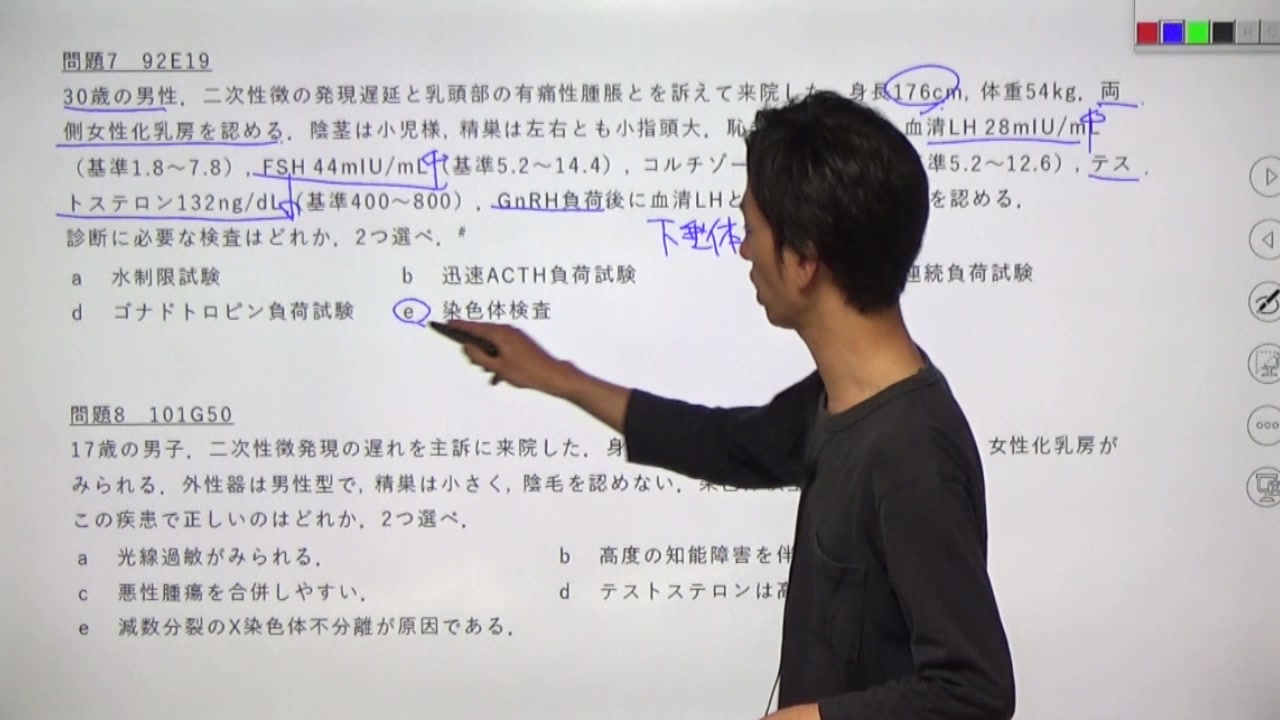 問題7 92E19
30歳の男性．二次性徴の発現遅延と乳頭部の有痛性腫脹とを訴えて来院した 身長176cm, 体重54kg．両
側女性化乳房を認める．陰茎は小児様, 精巣は左右とも小指頭大． 血清LH 28mIU/mL
（基準1.8〜7.8）, FSH 44mIU/mL（基準5.2〜14.4）, コルチゾー 準5.2〜12.6）, テス
トステロン132ng/dL（基準400〜800）．GnRH負荷後に血清LHと を認める．
下垂体
診断に必要な検査はどれか．2つ選べ．#
a 水制限試験 b 迅速ACTH負荷試験 連続負荷試験
d ゴナドトロピン負荷試験 e 染色体検査
問題8 101G50
17歳の男子．二次性徴発現の遅れを主訴に来院した． 女性化乳房が
みられる．外性器は男性型で, 精巣は小さく, 陰毛を認めない．
この疾患で正しいのはどれか．2つ選べ．
a 光線過敏がみられる． b 高度の知能障害を伴
c 悪性腫瘍を合併しやすい． d テストステロンは高
e 減数分裂のX染色体不分離が原因である．